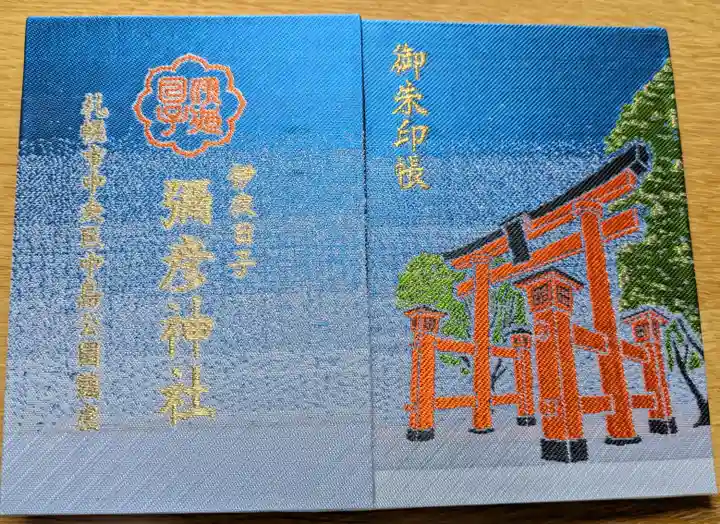 御朱印帳
伊夜日子
彌彦神社
札幌市中央区中島公園鎮座